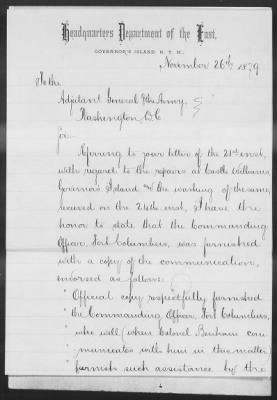 Headquarters Department of the East,
GOVERNOR'S ISLAND, N. Y. H.,
November 26th, 1879
To the
Adjutant General of the Army
Washington, D.C.
Sir:-
Referring to your letter of the 21st inst,
with regard to the repairs at Castle Williams,
Governors Island and the washing of the same,
received on the 24th inst, I have the
honor to state that the Commanding
Officer, Fort Columbus, was furnished
with a copy of the communication,
endorsed as follows:
" Official copy respectfully furnished
" the Commanding Officer, Fort Columbus,
" who will (when Colonel Benham com
" municates with him in this matter)
" furnish such assistance by the